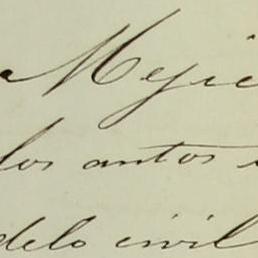 Mejic
los autos
delo civil